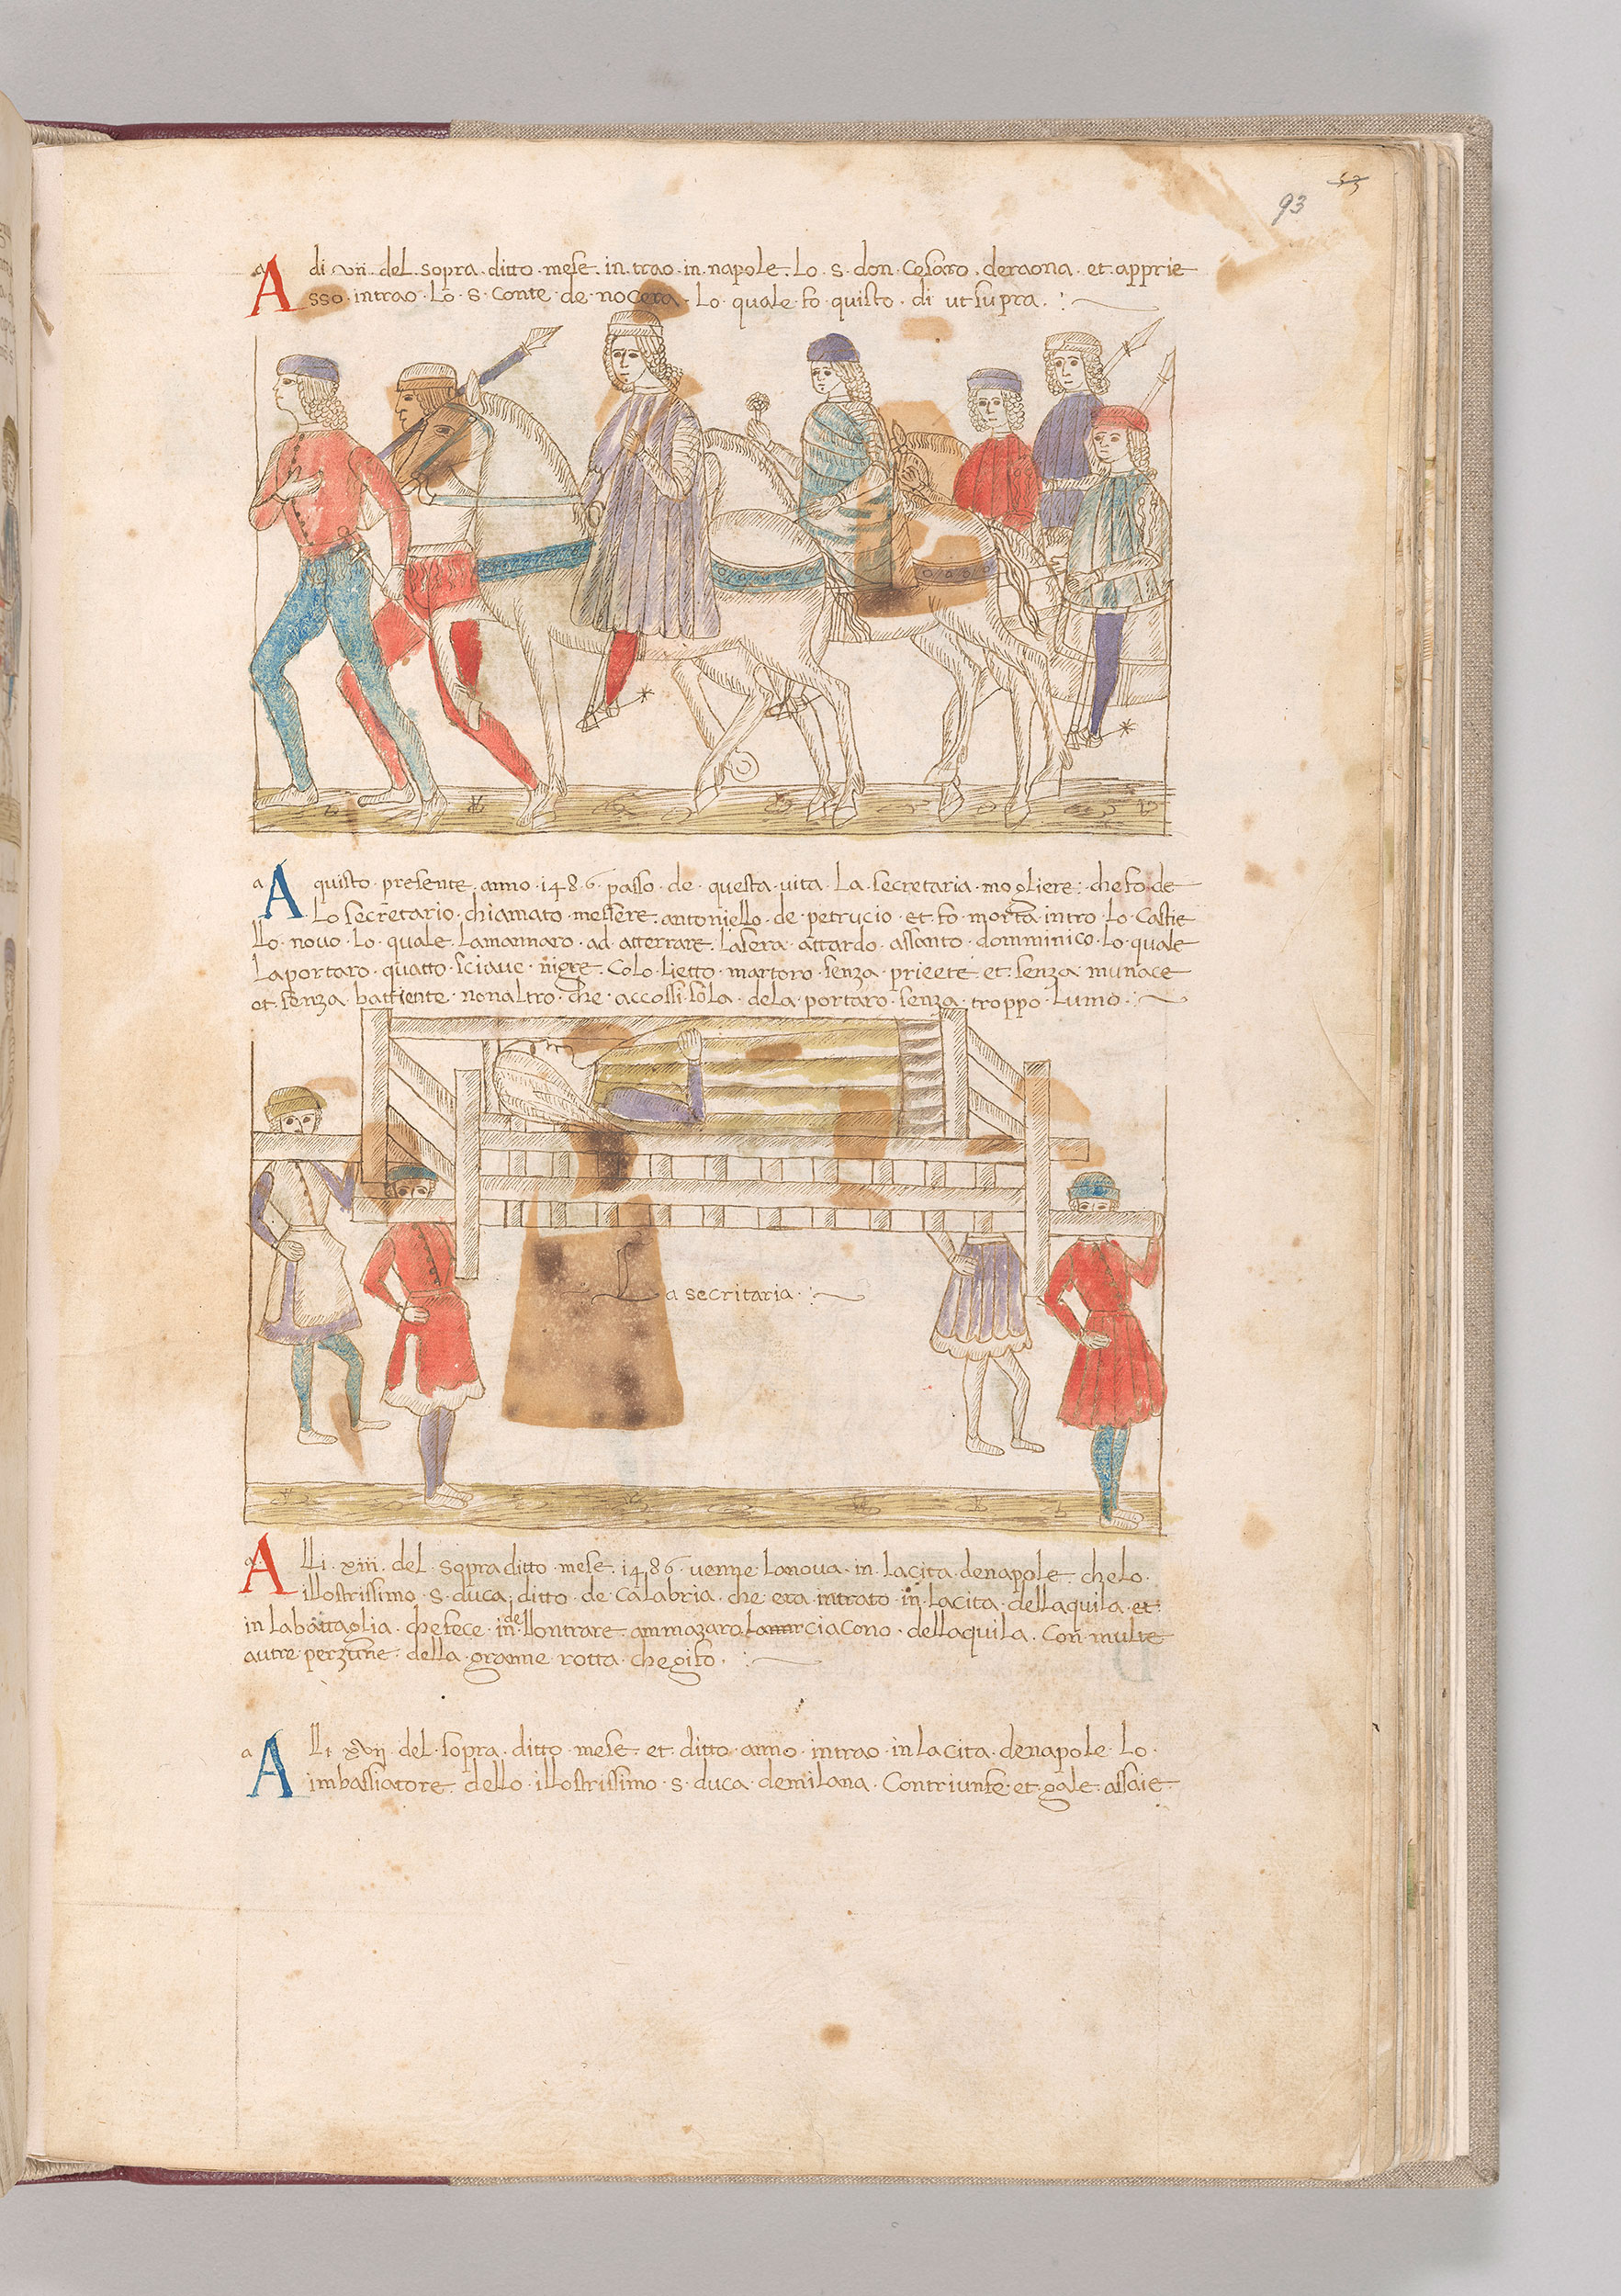 93
53
A di vii · del · sopra · ditto · mese · in trao · in napole · Lo · s · don · Cesaro · deraona · et · apprie
sso · intrao · Lo · s · Conte · de · nocera · Lo · quale · fo · quisto · di ut supra · :
A quisto · presente · anno · 1486 · passo · de · questa · uita · La · secretaria · mogliere · che fo · de
Lo secretario · chiamato · messere · antoniello · de · petrucio · et · fo · morta · intro · Lo · Castie
llo · nouo · Lo · quale · Lamannaro · ad · atterrare · Lasera · attardo · assanto · domminico · Lo · quale
Laportaro · quatto · sciaue · nigre · Colo · Lietto · martoro · senza · prieete · et · senza · munace
et · senza · battiente · nonaltro · che · accossi · sola · dela · portaro · senza · troppo · Lumo ·
La secritaria · :
A lli · xiii · del · sopra ditto · mese · 1486 · uenne Lanoua · in · Lacita · denapole · chelo ·
illostrissimo · s · duca · ditto · de Calabria · che era intrato · in · Lacita · dellaquila · et ·
in Labattaglia · che fece · in dellontrare · ammazaro Larciacono · dellaquila · Con multe
autre perzune · della · granne rotta · chegisto · :
A lli xvii · del · sopra · ditto · mese · et · ditto · anno · intrao · in La cita · denapole · Lo ·
imbassiatore · dello · illostrissimo · s · duca · demilana · Contriunfe · et · gale · assaie